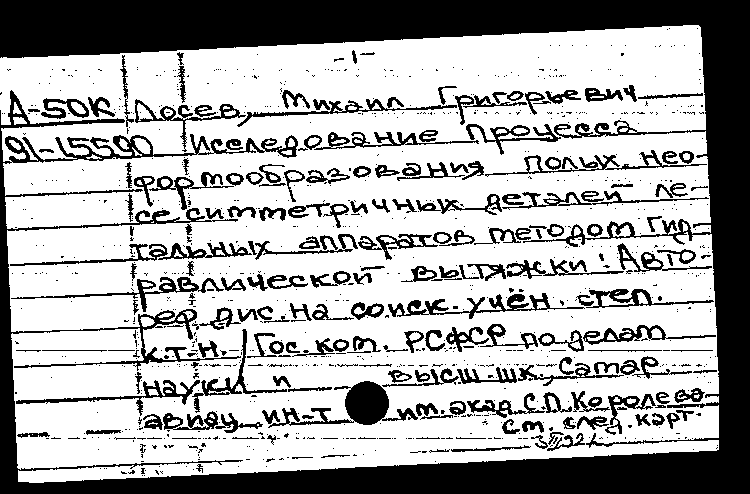 -1-
А-50К Лосев, Михаил Григорьевич
91-15590 Исследование процесса
формообразования полых нео-
сесимметричных деталей ле-
тальных аппаратов методом гид-
равлической вытяжки: Авто-
реф дис. на соиск. учён. степ.
к.т.н. / Гос. ком. РСФСР по делам
науки и высш. шк., Самар.
авиац. ин-т им. акад. С.П. Королева
См. след. карт.